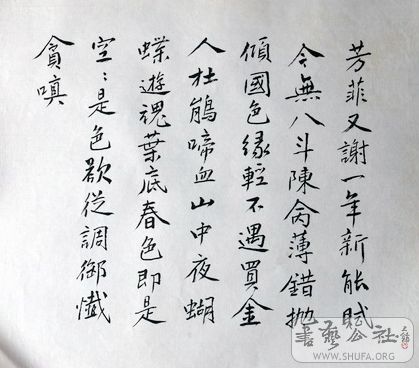 芳菲又謝一年新能賦
今無八斗陳奩薄錯拋
傾國色緣輕不遇買金
人杜鵑啼血山中夜蝴
蝶遊魂葉底春色即是
空:是色欲從調御懺
貪嗔
書藝公社
WWW.SHUFA.ORG